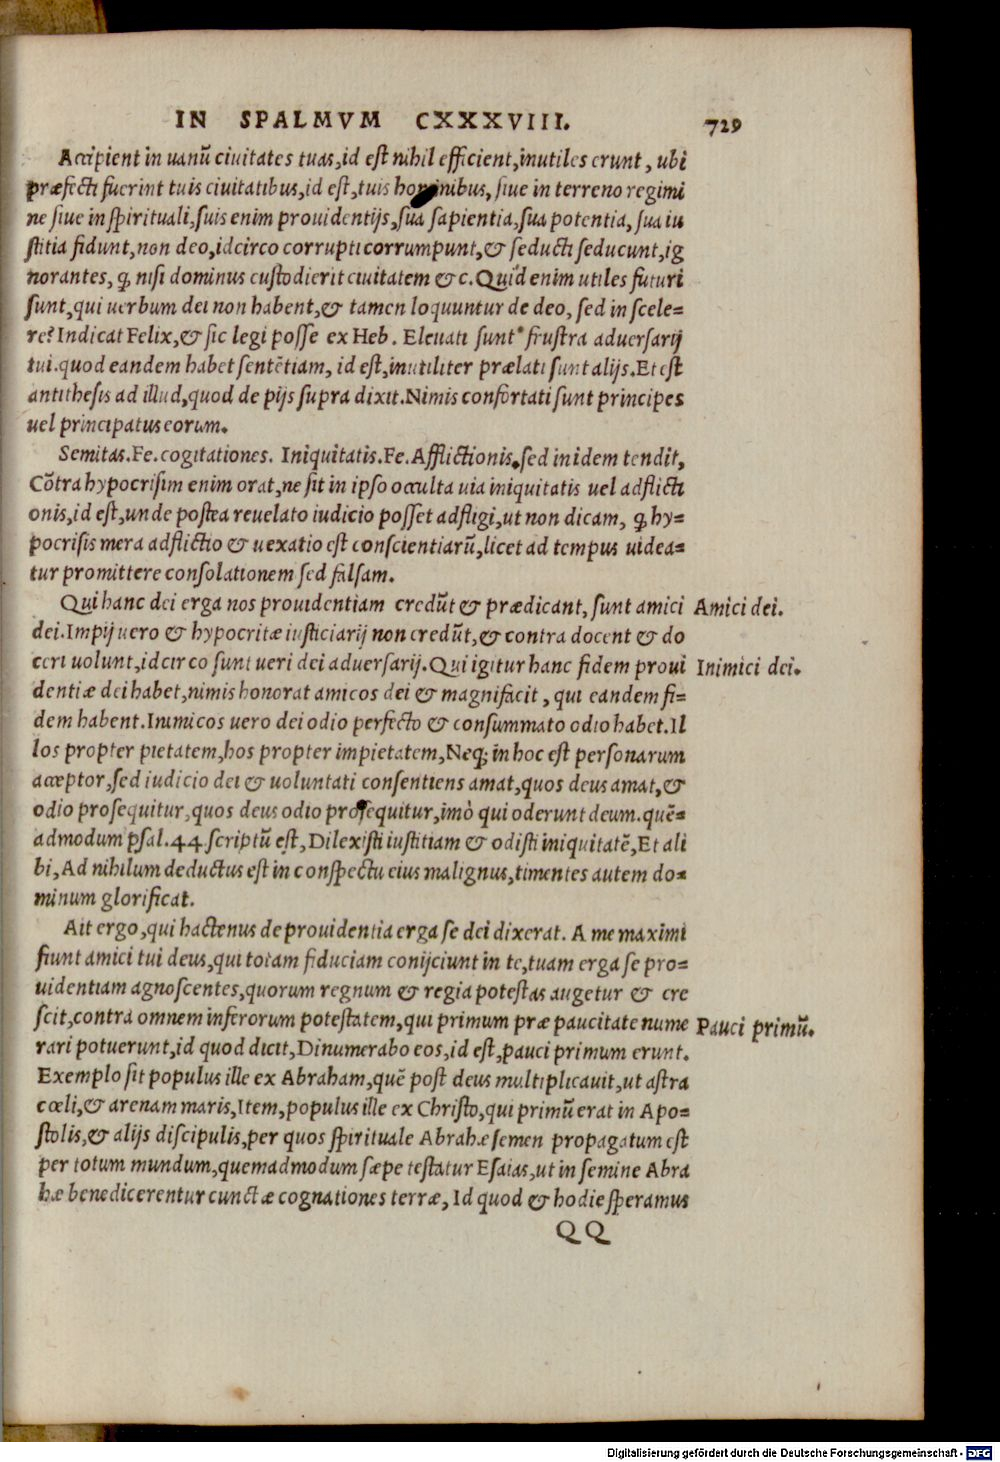 IN SPALMVM CXXXVIII. 729
Accipient in uanũ ciuitates tuas, id est nihil efficient, inutiles erunt, ubi
præfecti fuerint tuis ciuitatibus, id est, tuis hominibus, siue in terreno regimi
ne siue in spirituali, suis enim prouidentijs, sua sapientia, sua potentia, sua iu
stitia fidunt, non deo, idcirco corrupti corrumpunt, & seducti seducunt, ig
norantes, ꝙ nisi dominus custodierit ciuitatem &c. Quid enim utiles futuri
sunt, qui uerbum dei non habent, & tamen loquuntur de deo, sed in scele=
re? Indicat Felix, & sic legi posse ex Heb. Eleuati sunt frustra aduersarij
tui. quod eandem habet sentẽtiam, id est, inutiliter prælati sunt alijs. Et est
antithesis ad illud, quod de pijs supra dixit. Nimis confortati sunt principes
uel principatus eorum.
Semitas. Fe. cogitationes. Iniquitatis. Fe. Afflictionis. sed in idem tendit,
Cõtra hypocrisim enim orat, ne sit in ipso occulta uia iniquitatis uel adflicti
onis, id est, unde postea reuelato iudicio posset adfligi, ut non dicam, ꝙ hy=
pocrisis mera adflictio & uexatio est conscientiarũ, licet ad tempus uidea=
tur promittere consolationem sed falsam.
Qui hanc dei erga nos prouidentiam credũt & prædicant, sunt amici Amici dei.
dei. Impij uero & hypocritæ iusticiarij non credũt, & contra docent & do
ceri uolunt, idcirco sunt ueri dei aduersarij. Qui igitur hanc fidem proui Inimici dei.
dentiæ dei habet, nimis honorat amicos dei & magnificit, qui eandem fi=
dem habent. Inimicos uero dei odio perfecto & consummato odio habet. Il
los propter pietatem, hos propter impietatem, Neq; in hoc est personarum
acceptor, sed iudicio dei & uoluntati consentiens amat, quos deus amat, &
odio prosequitur, quos deus odio prosequitur, imò qui oderunt deum. quẽ=
admodum psal. 44. scriptũ est, Dilexisti iustitiam & odisti iniquitatẽ, Et ali
bi, Ad nihilum deductus est in conspectu eius malignus, timentes autem do=
minum glorificat.
Ait ergo, qui hactenus de prouidentia erga se dei dixerat. A me maximi
fiunt amici tui deus, qui totam fiduciam conijciunt in te, tuam erga se pro=
uidentiam agnoscentes, quorum regnum & regia potestas augetur & cre
scit, contra omnem inferorum potestatem, qui primum præ paucitate nume Pauci primũ.
rari potuerunt, id quod dicit, Dinumerabo eos, id est, pauci primum erunt.
Exemplo sit populus ille ex Abraham, quẽ post deus multiplicauit, ut astra
cœli, & arenam maris, Item, populus ille ex Christo, qui primũ erat in Apo=
stolis, & alijs discipulis, per quos spirituale Abrahæ semen propagatum est
per totum mundum, quemadmodum sæpe testatur Esaias, ut in semine Abra
hæ benedicerentur cunctæ cognationes terræ, Id quod & hodie speramus
QQ
Digitalisierung gefördert durch die Deutsche Forschungsgemeinschaft - DFG